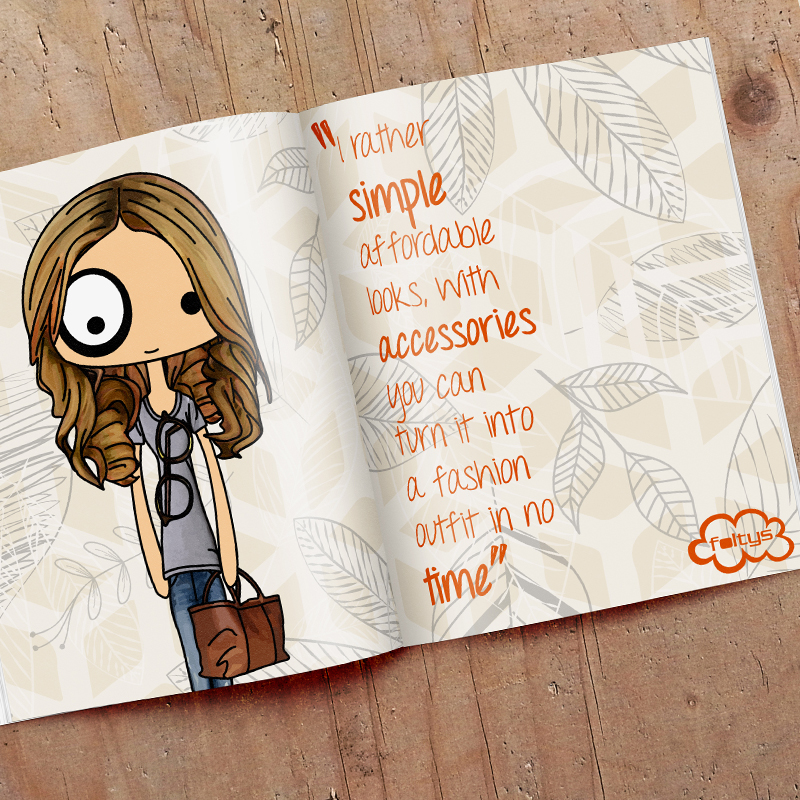 "I rather
simple
affordable
looks, with
accessories
you can
turn it into
a fashion
outfit in no
time"
foltys